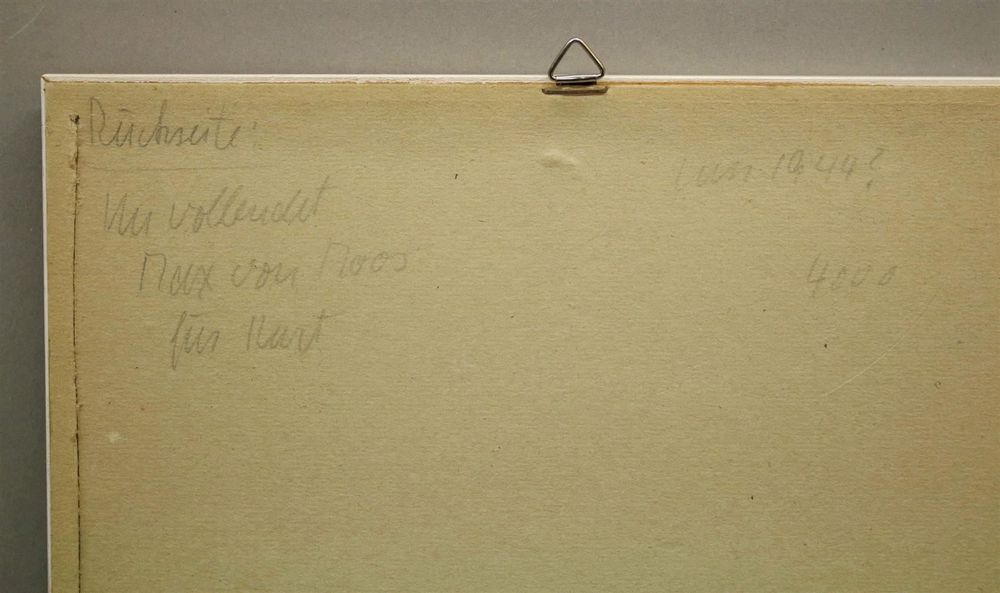 Rückseite:
vollendet
Max von Moos
für Kurt
1944?
4000